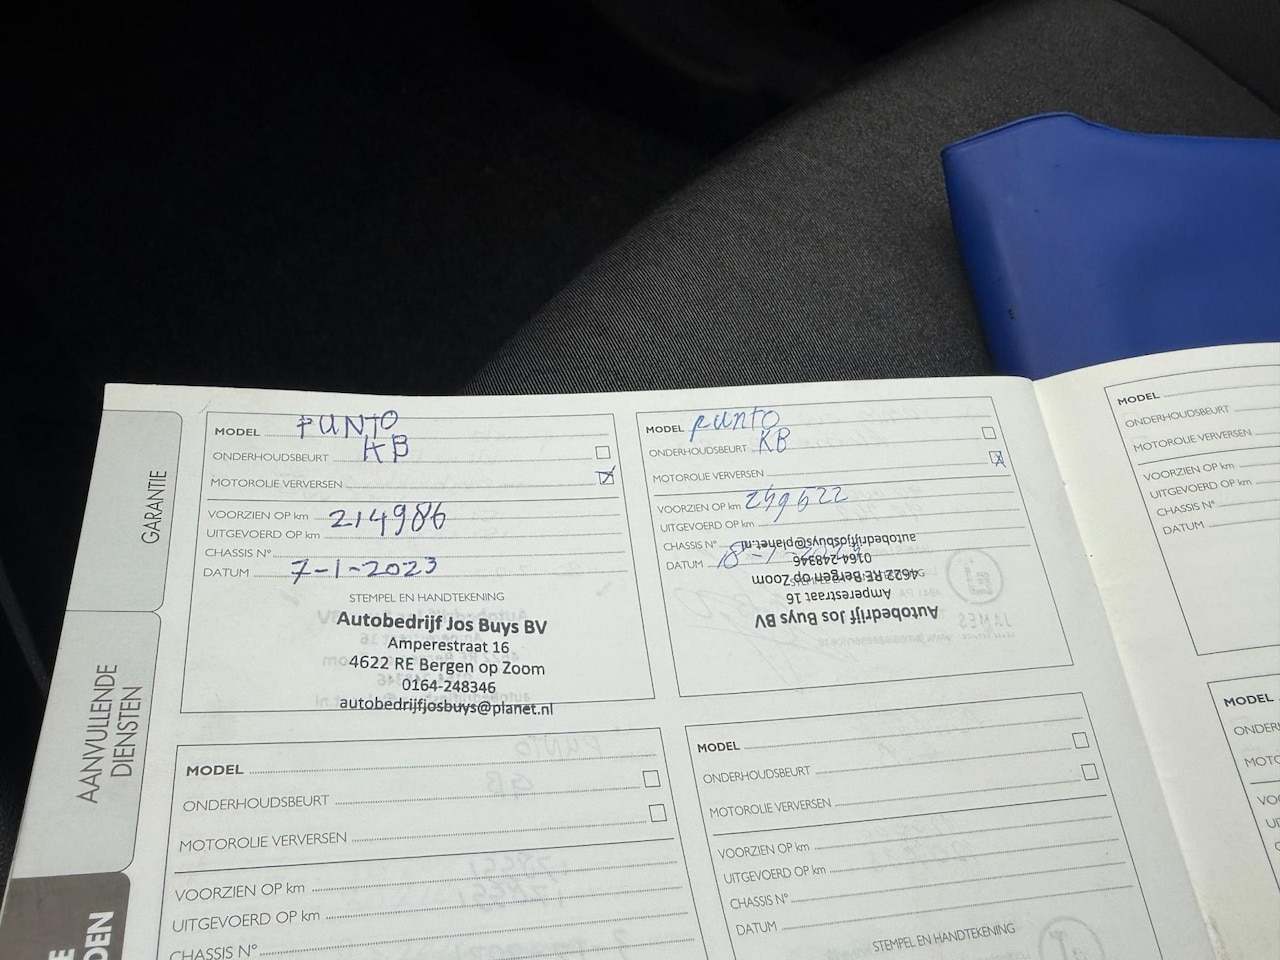 GARANTIE
AANVULLENDE
DIENSTEN
MODEL PUNTO
ONDERHOUDSBEURT KB
MOTOROLIE VERVERSEN
VOORZIEN OP km 214986
UITGEVOERD OP km
CHASSIS N°
DATUM 7-1-2023
STEMPEL EN HANDTEKENING
Autobedrijf Jos Buys BV
Amperestraat 16
4622 RE Bergen op Zoom
0164-248346
autobedrijfjosbuys@planet.nl
MODEL PUNTO
ONDERHOUDSBEURT KB
MOTOROLIE VERVERSEN
VOORZIEN OP km
UITGEVOERD OP km
CHASSIS N°
DATUM
Autobedrijf Jos Buys BV
Amperestraat 16
4622 RE Bergen op Zoom
0164-248346
autobedrijfjosbuys@planet.nl
MODEL
ONDERHOUDSBEURT
MOTOROLIE VERVERSEN
VOORZIEN OP km
UITGEVOERD OP km
CHASSIS N°
DATUM
MODEL
ONDERHOUDSBEURT
MOTOROLIE VERVERSEN
VOORZIEN OP km
UITGEVOERD OP km
CHASSIS N°
MODEL
ONDERHOUDSBEURT
MOTOROLIE VERVERSEN
VOORZIEN OP km
UITGEVOERD OP km
CHASSIS N°
DATUM
STEMPEL EN HANDTEKENING
MODEL